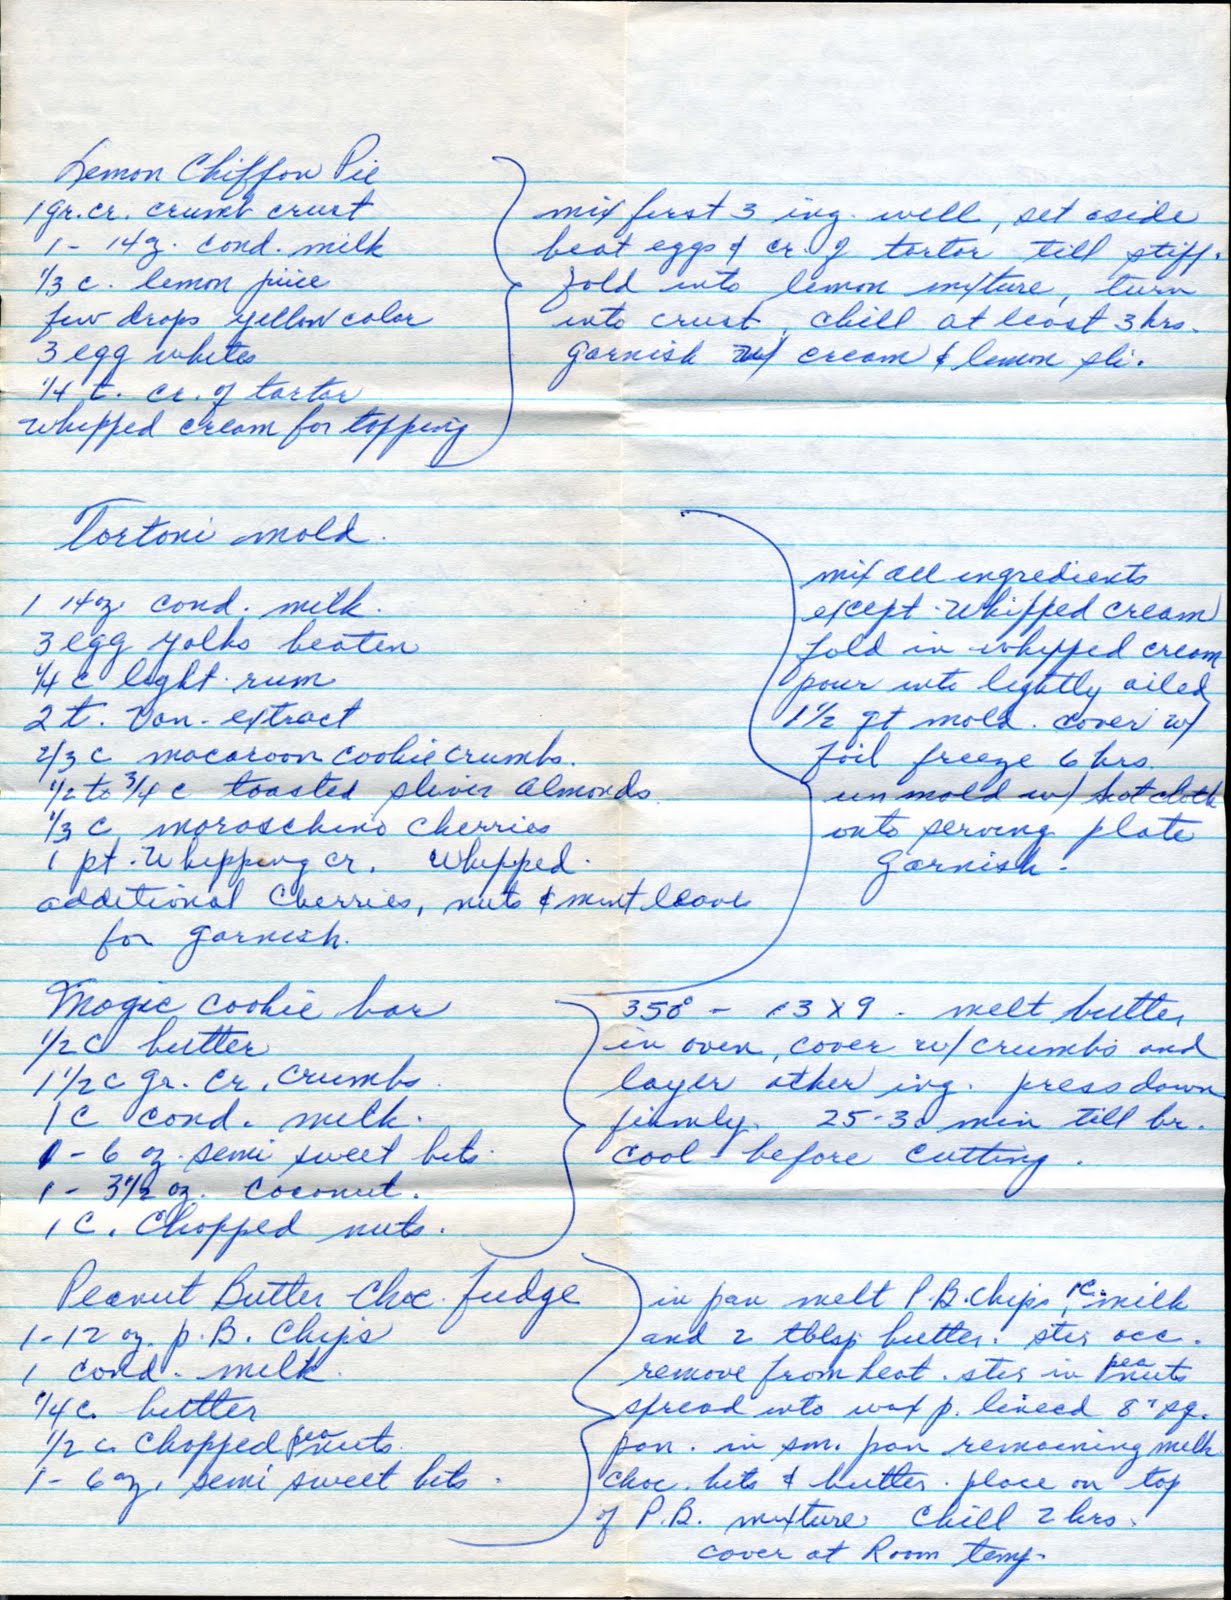 Lemon Chiffon Pie
1 gr. cr. crumb crust
1 - 14 oz. cond. milk
1/3 c. lemon juice
few drops yellow color
3 egg whites
1/4 t. cr. of tartar
Whipped cream for topping
mix first 3 ing. well, set aside
beat eggs & cr. of tartar till stiff.
fold into lemon mixture, turn
into crust, chill at least 3 hrs.
garnish w/ cream & lemon sli.
Tortoni mold.
1 14 oz. cond. milk.
3 egg yolks beaten
1/4 c light rum
2 t. van. extract
2/3 c macaroon cookie crumbs.
1/2 to 3/4 c toasted sliver almonds
1/3 c maraschino cherries
1 pt. Whipping cr. Whipped.
additional cherries, nuts & mint leaves
for garnish.
mix all ingredients
except Whipped cream
fold in whipped cream
pour into lightly oiled
1 1/2 qt mold. cover w/
foil freeze 6 hrs.
unmold w/ hot cloth
onto serving plate
garnish.
Magic cookie bar
1/2 c butter
1 1/2 c gr. cr. crumbs.
1 c cond. milk.
1 - 6 oz. semi sweet bits.
1 - 3 1/2 oz. coconut.
1 c. chopped nuts.
350° - 13 x 9 - melt butter
in oven, cover w/ crumbs and
layer other ing. press down
firmly. 25-30 min till br.
cool before cutting.
Peanut Butter Choc. fudge
1 - 12 oz. p. B. chips
1 cond. milk.
1/4 c. butter
1/2 c. chopped peanuts.
1 - 6 oz. semi sweet bits.
in pan melt P.B. chips, 1 c. milk
and 2 tblsp butter. stir occ.
remove from heat. stir in peanuts
spread into wax p. lineed 8" sq.
pan. in sm. pan remaining milk
choc. bits & butter. place on top
of P.B. mixture chill 2 hrs.
cover at Room temp.